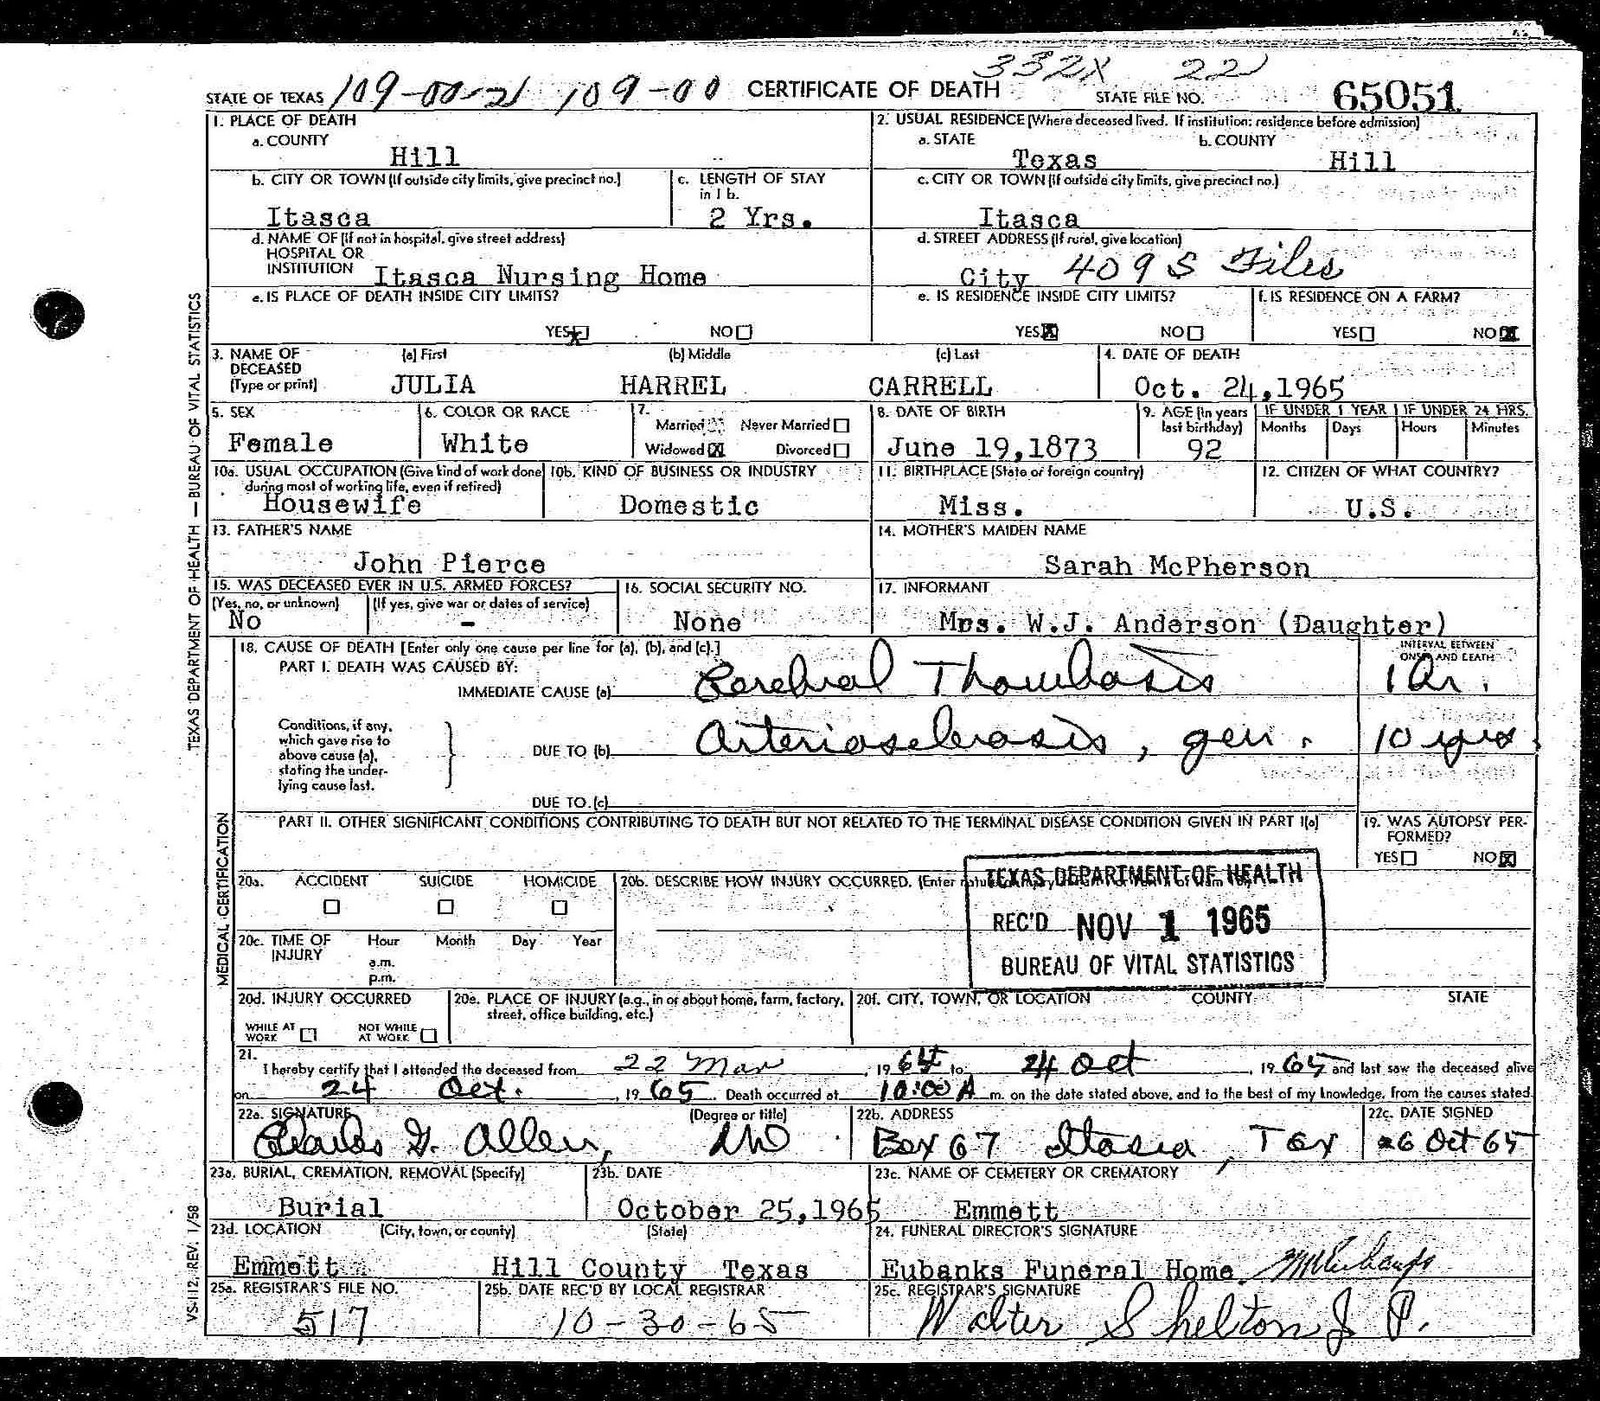 332X 22
STATE OF TEXAS 109-00-21 109-00 CERTIFICATE OF DEATH STATE FILE NO. 65051
1. PLACE OF DEATH
a. COUNTY
Hill
2. USUAL RESIDENCE (Where deceased lived. If institution: residence before admission)
a. STATE b. COUNTY
Texas Hill
b. CITY OR TOWN (If outside city limits, give precinct no.)
Itasca
c. LENGTH OF STAY
in 1 b.
2 Yrs.
c. CITY OR TOWN (If outside city limits, give precinct no.)
Itasca
d. NAME OF (If not in hospital, give street address)
HOSPITAL OR
INSTITUTION Itasca Nursing Home
d. STREET ADDRESS (If rural, give location)
City 409 S Files
e. IS PLACE OF DEATH INSIDE CITY LIMITS?
YES X NO
e. IS RESIDENCE INSIDE CITY LIMITS?
YES X NO
f. IS RESIDENCE ON A FARM?
YES NO X
3. NAME OF
DECEASED
(Type or print)
(a) First (b) Middle (c) Last
JULIA HARREL CARRELL
4. DATE OF DEATH
Oct. 24,1965
5. SEX
Female
6. COLOR OR RACE
White
7.
Married Never Married
Widowed X Divorced
8. DATE OF BIRTH
June 19,1873
9. AGE (In years
last birthday)
92
IF UNDER 1 YEAR IF UNDER 24 HRS.
Months Days Hours Minutes
10a. USUAL OCCUPATION (Give kind of work done
during most of working life, even if retired)
Housewife
10b. KIND OF BUSINESS OR INDUSTRY
Domestic
11. BIRTHPLACE (State or foreign country)
Miss.
12. CITIZEN OF WHAT COUNTRY?
U.S.
13. FATHER'S NAME
John Pierce
14. MOTHER'S MAIDEN NAME
Sarah McPherson
15. WAS DECEASED EVER IN U.S. ARMED FORCES?
(Yes, no, or unknown) (If yes, give war or dates of service)
No -
16. SOCIAL SECURITY NO.
None
17. INFORMANT
Mrs. W.J. Anderson (Daughter)
18. CAUSE OF DEATH [Enter only one cause per line for (a), (b), and (c).]
PART I. DEATH WAS CAUSED BY:
INTERVAL BETWEEN
ONSET AND DEATH
IMMEDIATE CAUSE (a) Cerebral Thombosis 1 Dr.
Conditions, if any,
which gave rise to
above cause (a),
stating the under-
lying cause last.
DUE TO (b) Arteriosclerosis, gen. 10 yrs.
DUE TO (c)
PART II. OTHER SIGNIFICANT CONDITIONS CONTRIBUTING TO DEATH BUT NOT RELATED TO THE TERMINAL DISEASE CONDITION GIVEN IN PART I(a)
19. WAS AUTOPSY PER-
FORMED?
YES NO X
20a. ACCIDENT SUICIDE HOMICIDE
20b. DESCRIBE HOW INJURY OCCURRED. (Enter
TEXAS DEPARTMENT OF HEALTH
REC'D NOV 1 1965
BUREAU OF VITAL STATISTICS
20c. TIME OF
INJURY
Hour Month Day Year
a.m.
p.m.
20d. INJURY OCCURRED
WHILE AT
WORK
NOT WHILE
AT WORK
20e. PLACE OF INJURY (e.g., in or about home, farm, factory,
street, office building, etc.)
20f. CITY, TOWN, OR LOCATION COUNTY STATE
21.
I hereby certify that I attended the deceased from 22 Mar, 1964 to 24 Oct, 1965 and last saw the deceased alive
on 24 Oct., 1965. Death occurred at 10:00 A m. on the date stated above, and to the best of my knowledge, from the causes stated.
22a. SIGNATURE (Degree or title)
Charles G. Allen, MD
22b. ADDRESS
Box 67 Itasca, Tex
22c. DATE SIGNED
26 Oct 65
23a. BURIAL, CREMATION, REMOVAL (Specify)
Burial
23b. DATE
October 25,1965
23c. NAME OF CEMETERY OR CREMATORY
Emmett
23d. LOCATION (City, town, or county) (State)
Emmett Hill County Texas
24. FUNERAL DIRECTOR'S SIGNATURE
Eubanks Funeral Home
25a. REGISTRAR'S FILE NO.
517
25b. DATE REC'D BY LOCAL REGISTRAR
10-30-65
25c. REGISTRAR'S SIGNATURE
Walter Shelton J P.
TEXAS DEPARTMENT OF HEALTH — BUREAU OF VITAL STATISTICS
MEDICAL CERTIFICATION
VS-112, REV. 1/58